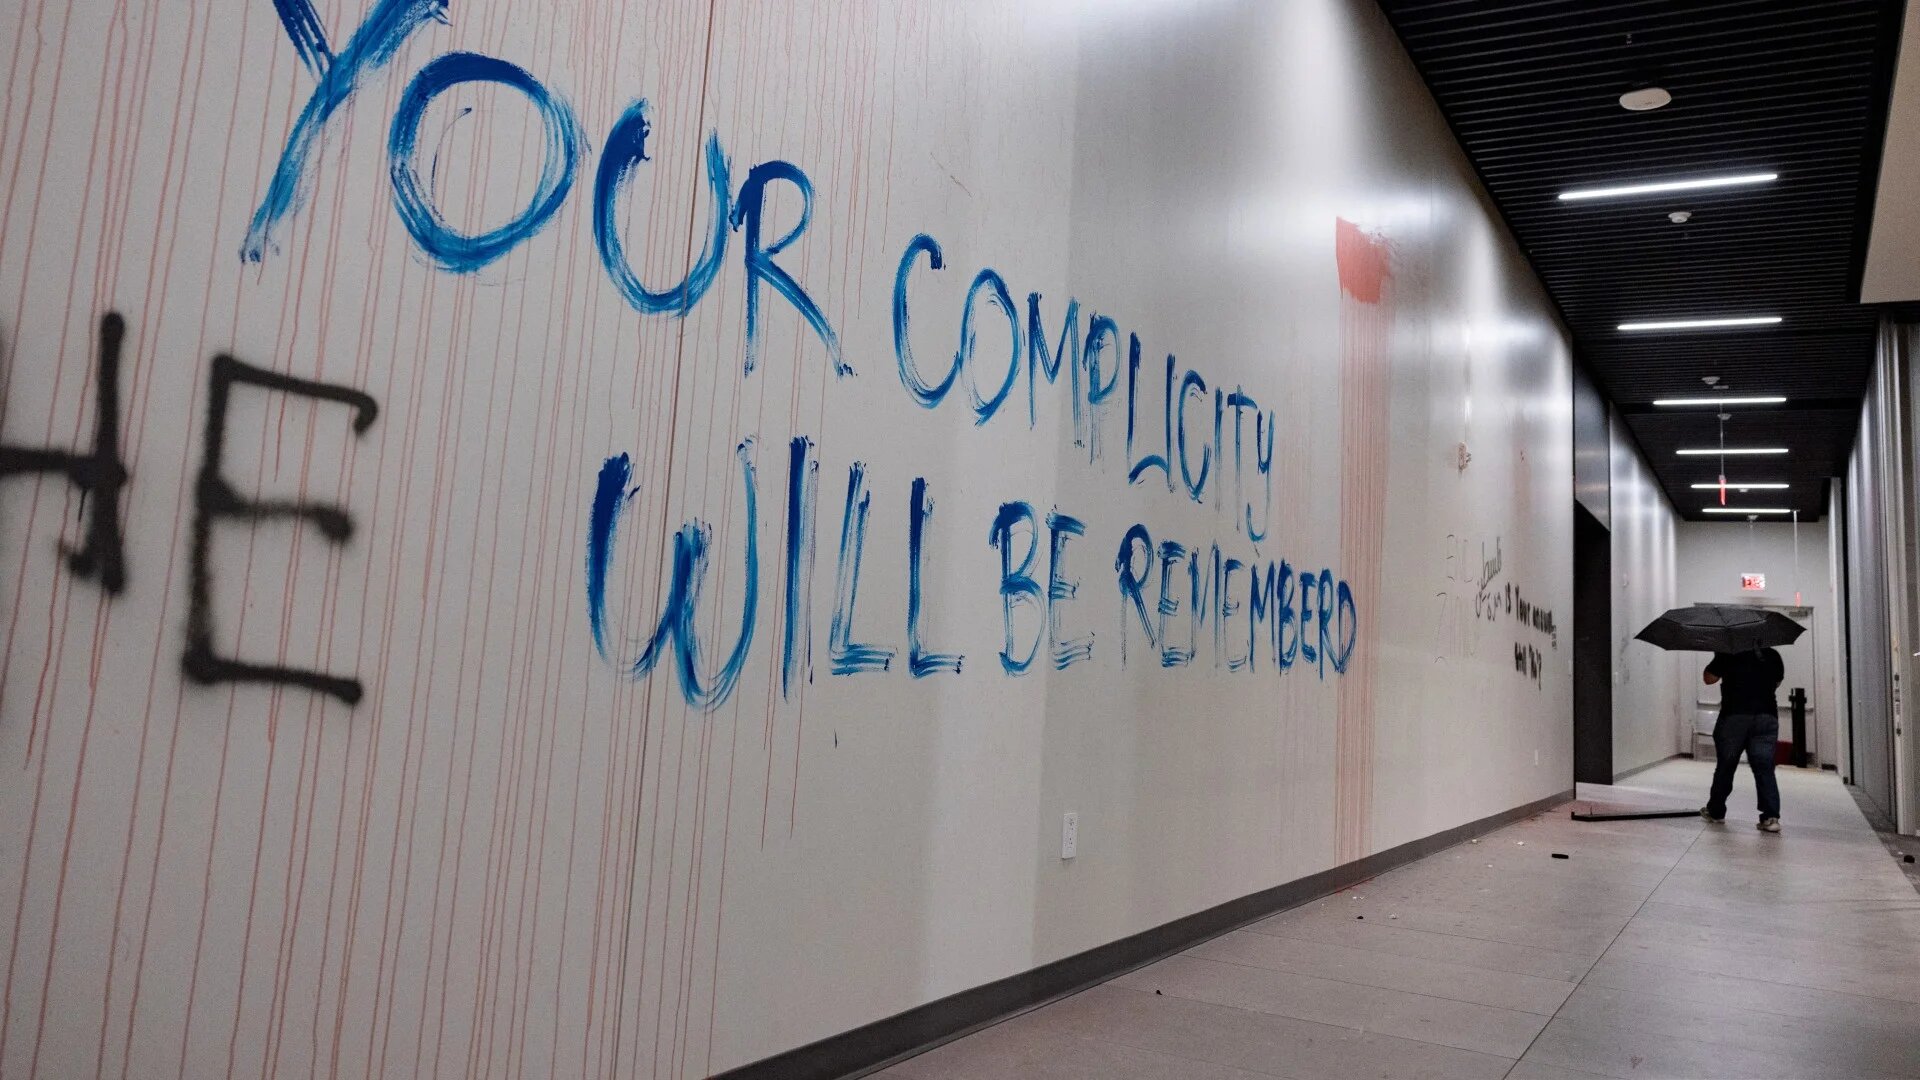 YOUR COMPLICITY
WILL BE REMEMBERD
HE
IS YOUR